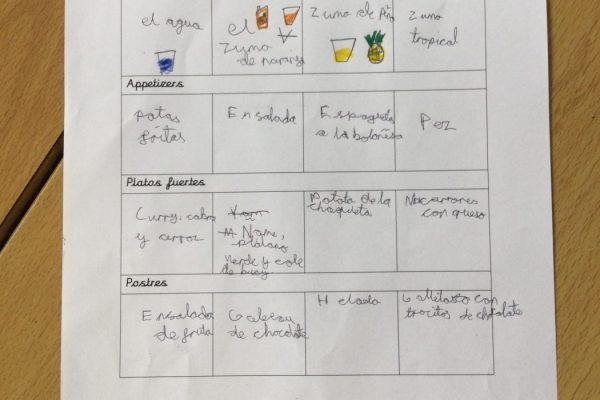 el agua
el
zumo
de naranja
Zumo de Piña
Zumo
tropical
Appetizers
patas
fritas
Ensalada
Espaguetis
a la boloñesa
Pez
Platos fuertes
Curry, cabra
y arroz
Ñame,
platano
verde y cole
de buey
Patata de la
chaqueta
Macarrones
con queso
Postres
Ensalada
de fruta
de chocolate
Helado
trocitos de chocolate